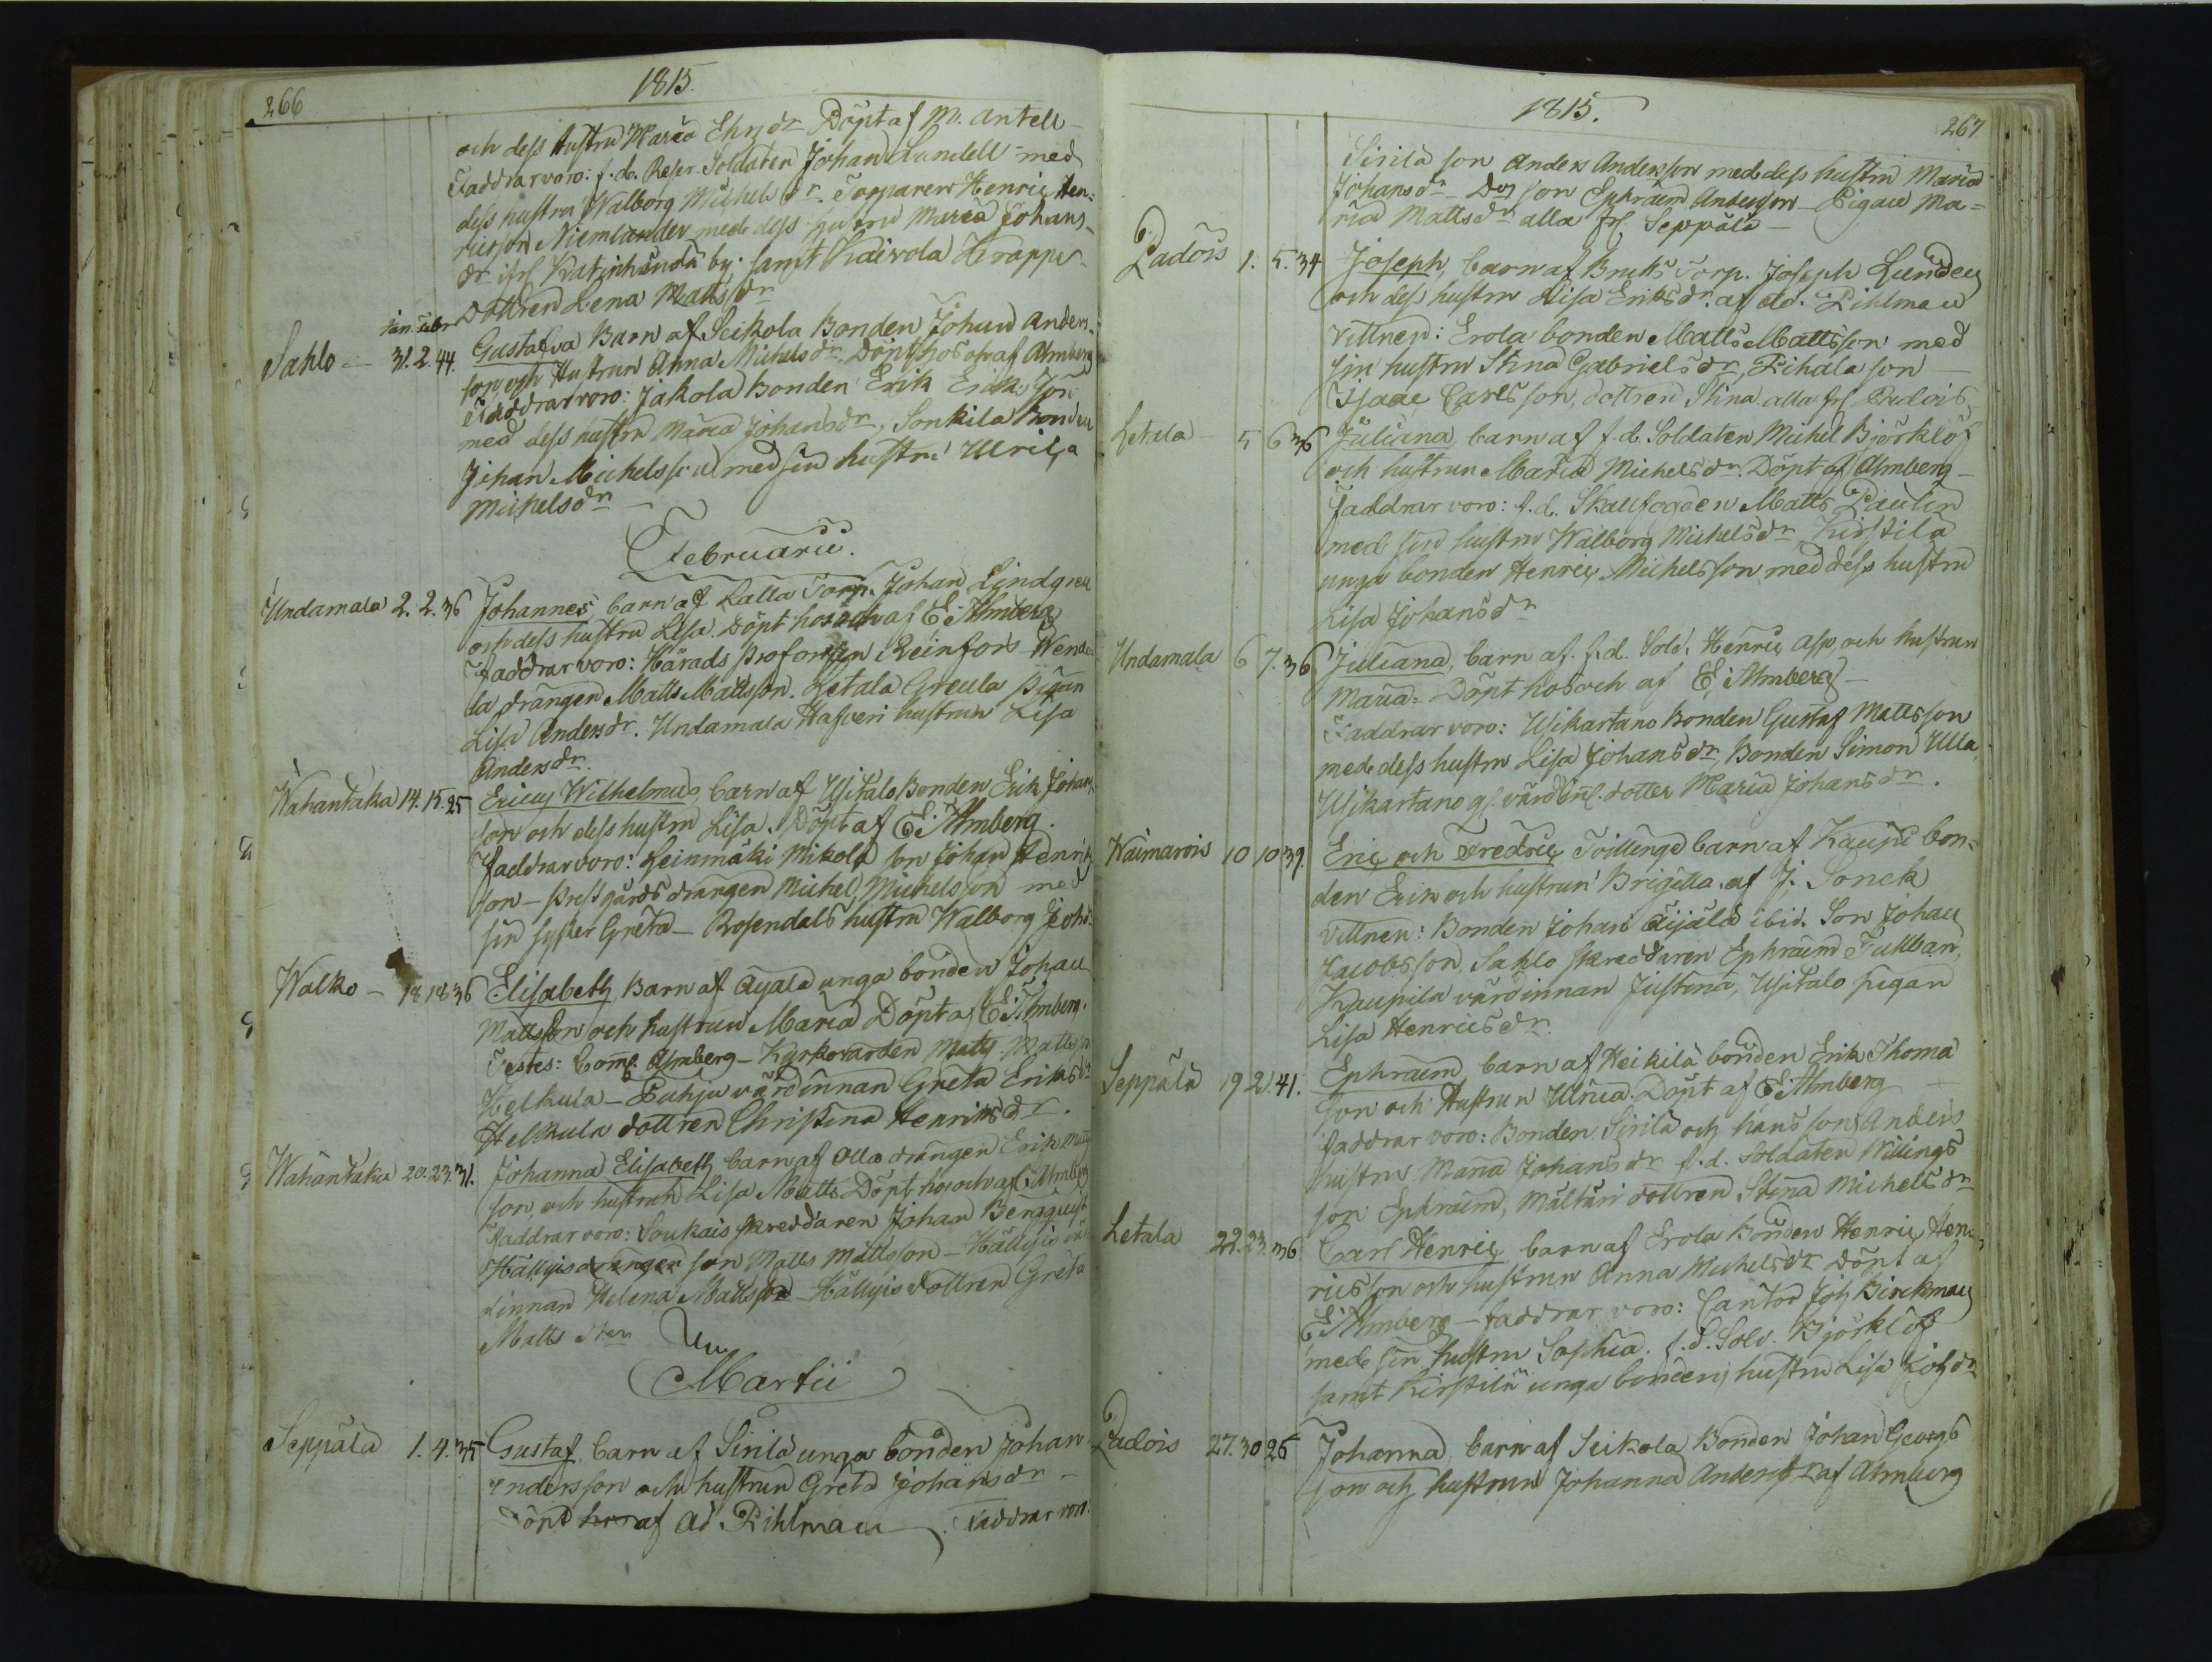 266
1815.
och dess Hustru Maria Ehrsdr Döpt af M. Antell
Faddrar voro: f.d. Reser. Soldaten Johan Lundell med
dess hustru Walborg Michelsdr. Torparen Henric Hen=
ricsson Niemlander med dess hustru Maria Johans-
dr ifrl by: samt Kairola Krappu
dottren Lena Mattsdr
Jan. Febr
Sahlo - 31. 2. 44. Gustafva Barn af Seikola Bonden Johan Anders-
son och Hustrun Anna Michelsdr. Döpt hos och af Almberg
Faddrar voro: Jakola Bonden Erik Eriksson
med dess hustru Maria Johansdr, Sonkila Bonden
Johan Michelsson med sin hustru Ulrica
Michelsdr -
Februarii.
Undamala 2. 2. 36 Johannes, barn af Lalla Torp. Johan Lindgren
och dess hustru Lisa. Döpt hos och af E. Almberg
Faddrar voro: Härads profossen Reinfors Wende
la drängen Matts Mattsson. Letala Greula Pigan
Lisa Andersdr. Undamala Hasveri hustrun Lisa
Andersdr.
Wahantaka 14. 15. 25 Ericus Wilhelmus, barn af Usitalo Bonden Erik Johans
son och dess hustru Lisa. Döpt af E. Almberg.
Faddrar voro: Leinmäki Mikola son Johan Henrik
son - Prestgårds drängen Michel Michelsson med
sin syster Greta - Rosendals hustru Walborg Joh:
Walko - 18 18 36 Elisabeth Barn af Äyälä unga bonden Johan
Mattsson och hustrun Maria Döpt af E. Almberg.
Testes: Comp. Almberg - Kyrkovärden Matts Mattsson
Helkula - Puhju värdinnan Greta Eriksdr
Helkula dottren Christina Henriksdr.
Wahantaka 20. 23. 31. Johanna Elisabeth barn af Olla drängen Erik Matts
son, och hustrun Lisa Matts. Döpt hos och af E. Almberg
Faddrar voro: Soukais skreddaren Johan Bergquist
Hällyis drängen son Matts Mattsson - Hällyis vär
dinnan Helena Mattsdr - Hällyis dottren Greta
Matts dtr
Martii
Seppälä 1. 4. 35 Gustaf, barn af Sirilä unga bonden Johan
Andersson och hustrun Greta Johansdr -
Döpt hos af Ad. Pihlman. Faddrar voro:
1815.
267
Sirilä son Anders Andersson med dess hustru Maria
Johansdr - Dess son Ephraim Andersson - Pigan Ma=
ria Mattsdr alla frl Seppälä -
Padois 1. 5. 34 Joseph, barn af Bruks Torp. Joseph Lunden
och dess hustru Lisa Eriksdr. af Ad. Pihlman
Vittnen: Erola bonden Matts Mattsson med
sin hustru Stina Gabrielsdr, Fihala son -
Isaac Carlsson, dottren Stina alla frl Padois
Letala 5 6 36 Juliana, barn af f.d. Soldaten Michel Björklöf
och hustrun Maria Michelsdr. Döpt af Almberg -
Faddrar voro: f.d. Skallfogden Matts Paulin
med sin hustru Walborg Michelsdr Kirstilä
unga bonden Henric Michelsson med dess hustru
Lisa Johansdr
Undamala 6 7. 36 Juliana, barn af f.d. Sold. Henric Asp och hustrun
Maria. Döpt hos och af E. Almberg -
Faddrar voro: Wikartano Bonden Gustaf Mattsson
med dess hustru Lisa Johansdr, Bonden Simon Ulla,
Wikartano gl. värdins. dotter Maria Johansdr.
Kaimarois 10 10 39. Eric och Fredric Tvillinge barn af Kaupi bon=
den Erik och hustrun Brigitta. af J. Sonck
Vittnen: Bonden Johan Äijälä ibid. Son Johan
Jacobsson, Sahlo skreddaren Ephraim Tullman,
Kaupila värdinnan Justina, Usitalo pigan
Lisa Henricsdr.
Seppälä 19 21 41. Ephraim, barn af Heikilä bonden Erik Thoma
son och Hustrun Ulrica. Döpt af E. Almberg
Faddrar voro: Bonden Sirilä och hans son Anders
hustru Maria Johansdr f.d. Soldaten Willings
son Ephraim, Mälkäri dottren Stina Michelsdr
Letala 22. 23. 36 Carl Henric, barn af Erola Bonden Henric Hen-
ricsson och hustrun Anna Michelsdr Döpt af
E. Almberg - Faddrar voro: Cantor Joh. Birckman
med sin hustru Sophia. f.d. Sold. Björklöf
samt Kirstilä unga bonden, hustru Lisa Johdr
Padois 27. 30 26 Johanna, barn af Seikola Bonden Johan Georgs
son och hustrun Johanna Andersdr af Almberg